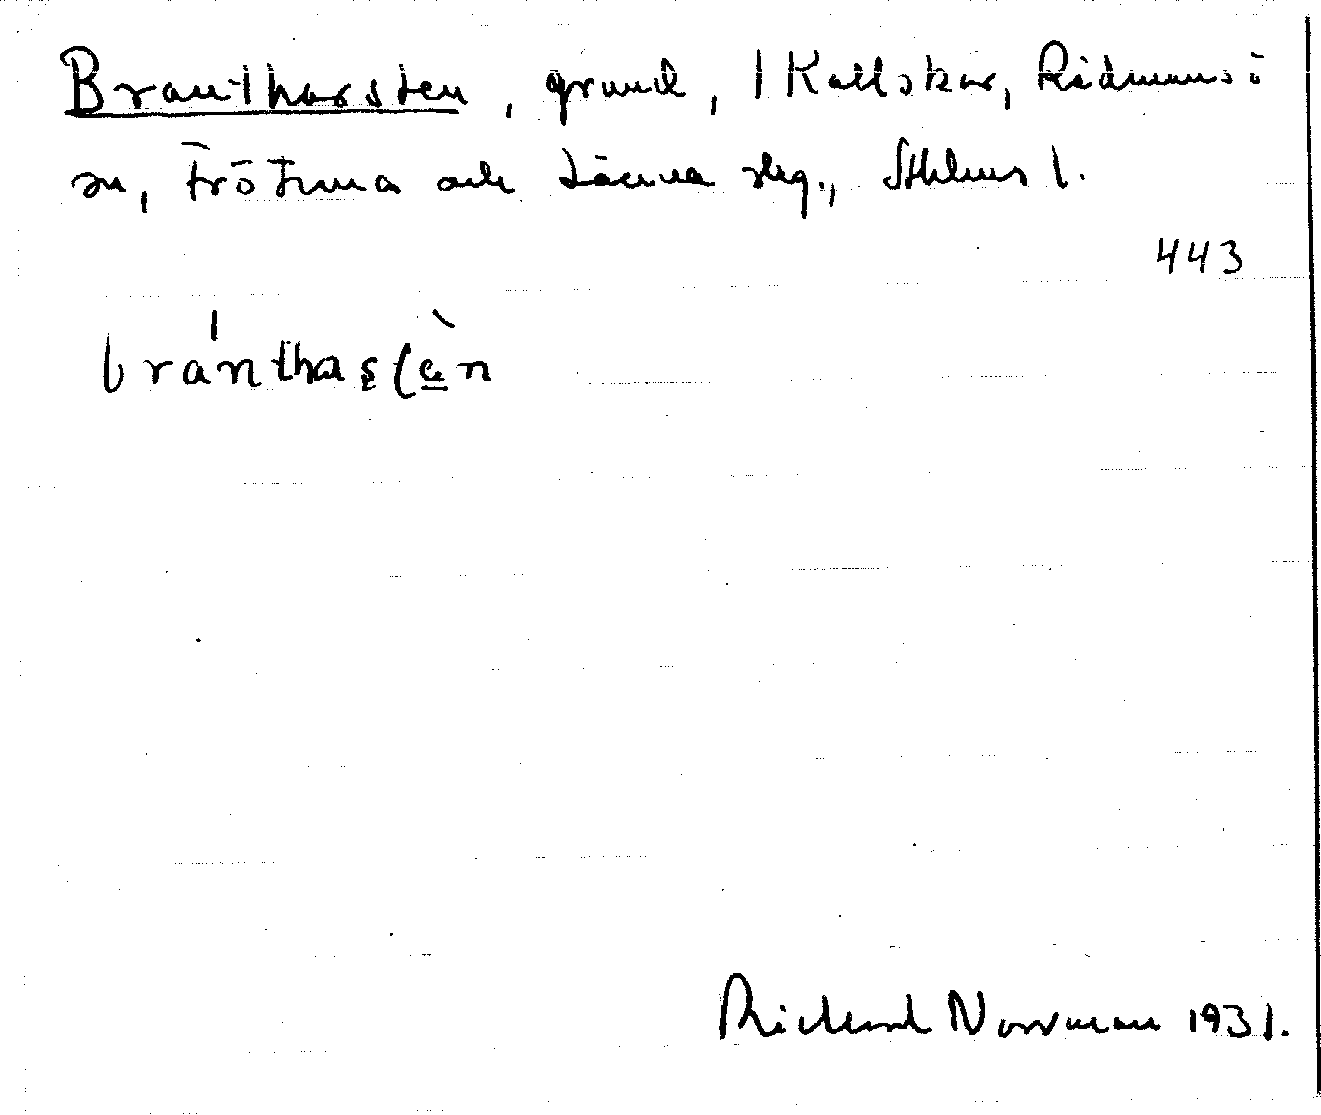 Brantharsten, grund, I Kallskär, Rådmansö
sn, Frötuna och Länna skg., Sthlms l.
443
Rickard Norrman 1931.